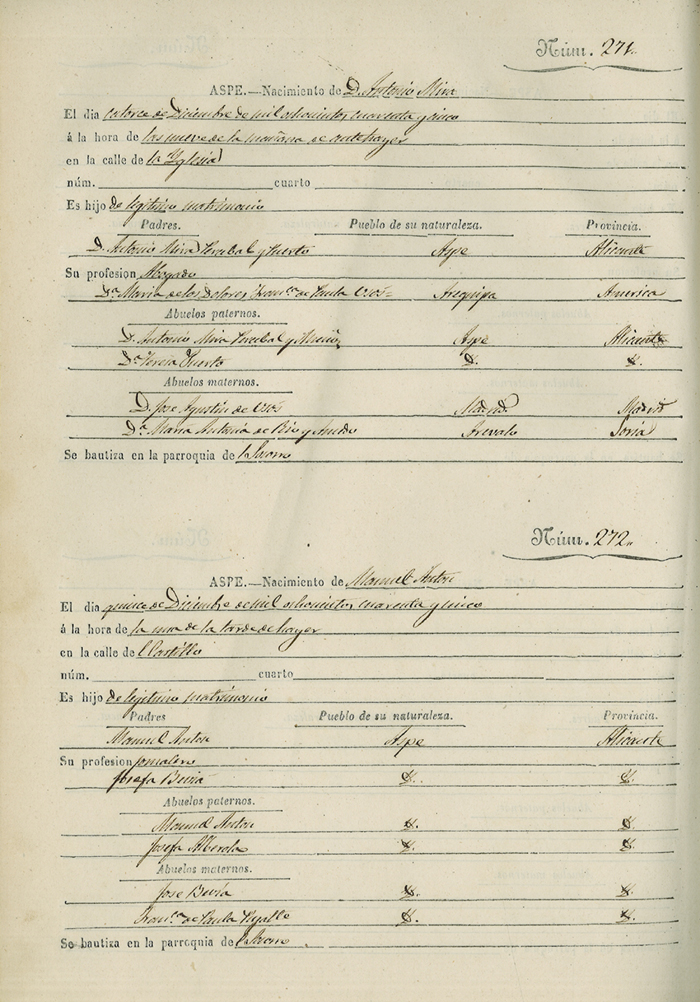 Núm. 271.
ASPE.—Nacimiento de D. Antonio Mira
El dia catorce de Diciembre de mil ochocientos cuarenta y cinco
á la hora de las nueve de la mañana de
en la calle de la Yglesia
núm. cuarto
Es hijo de legitimo matrimonio
Padres. Pueblo de su naturaleza. Provincia.
D. Antonio Mira Perceval y Puerto Aspe Alicante
Su profesion Abogado
Dª Maria de los Dolores Franca de Paula Arequipa America
Abuelos paternos.
D. Antonio Mira Perceval y Aspe Alicante
Dª Teresa Puerto Y. Y.
Abuelos maternos.
D. Jose Agustin de Madrid Madrid
Dª Maria Antonia de Rio y Arevalo Soria
Se bautiza en la parroquia de l Socorro
Núm. 272.
ASPE.—Nacimiento de Manuel Anton
El dia quince de Diciembre de mil ochocientos cuarenta y cinco
á la hora de la una de la tarde de hayer
en la calle de l Castillo
núm. cuarto
Es hijo de legitimo matrimonio
Padres Pueblo de su naturaleza. Provincia.
Manuel Anton Aspe Alicante
Su profesion jornalero
Josefa Beviá Y. Y.
Abuelos paternos.
Manuel Anton Y. Y.
Josefa Alberola Y. Y.
Abuelos maternos.
Jose Beviá Y. Y.
Franca de Paula Y. Y.
Se bautiza en la parroquia de l Socorro